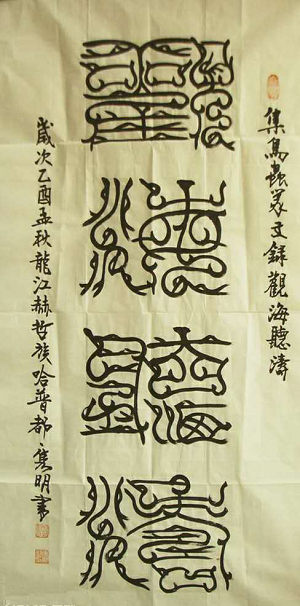 集鳥蟲篆文録觀海聽濤
觀海聽濤
歲次乙酉孟秋龍江赫哲族哈普都·隽明書